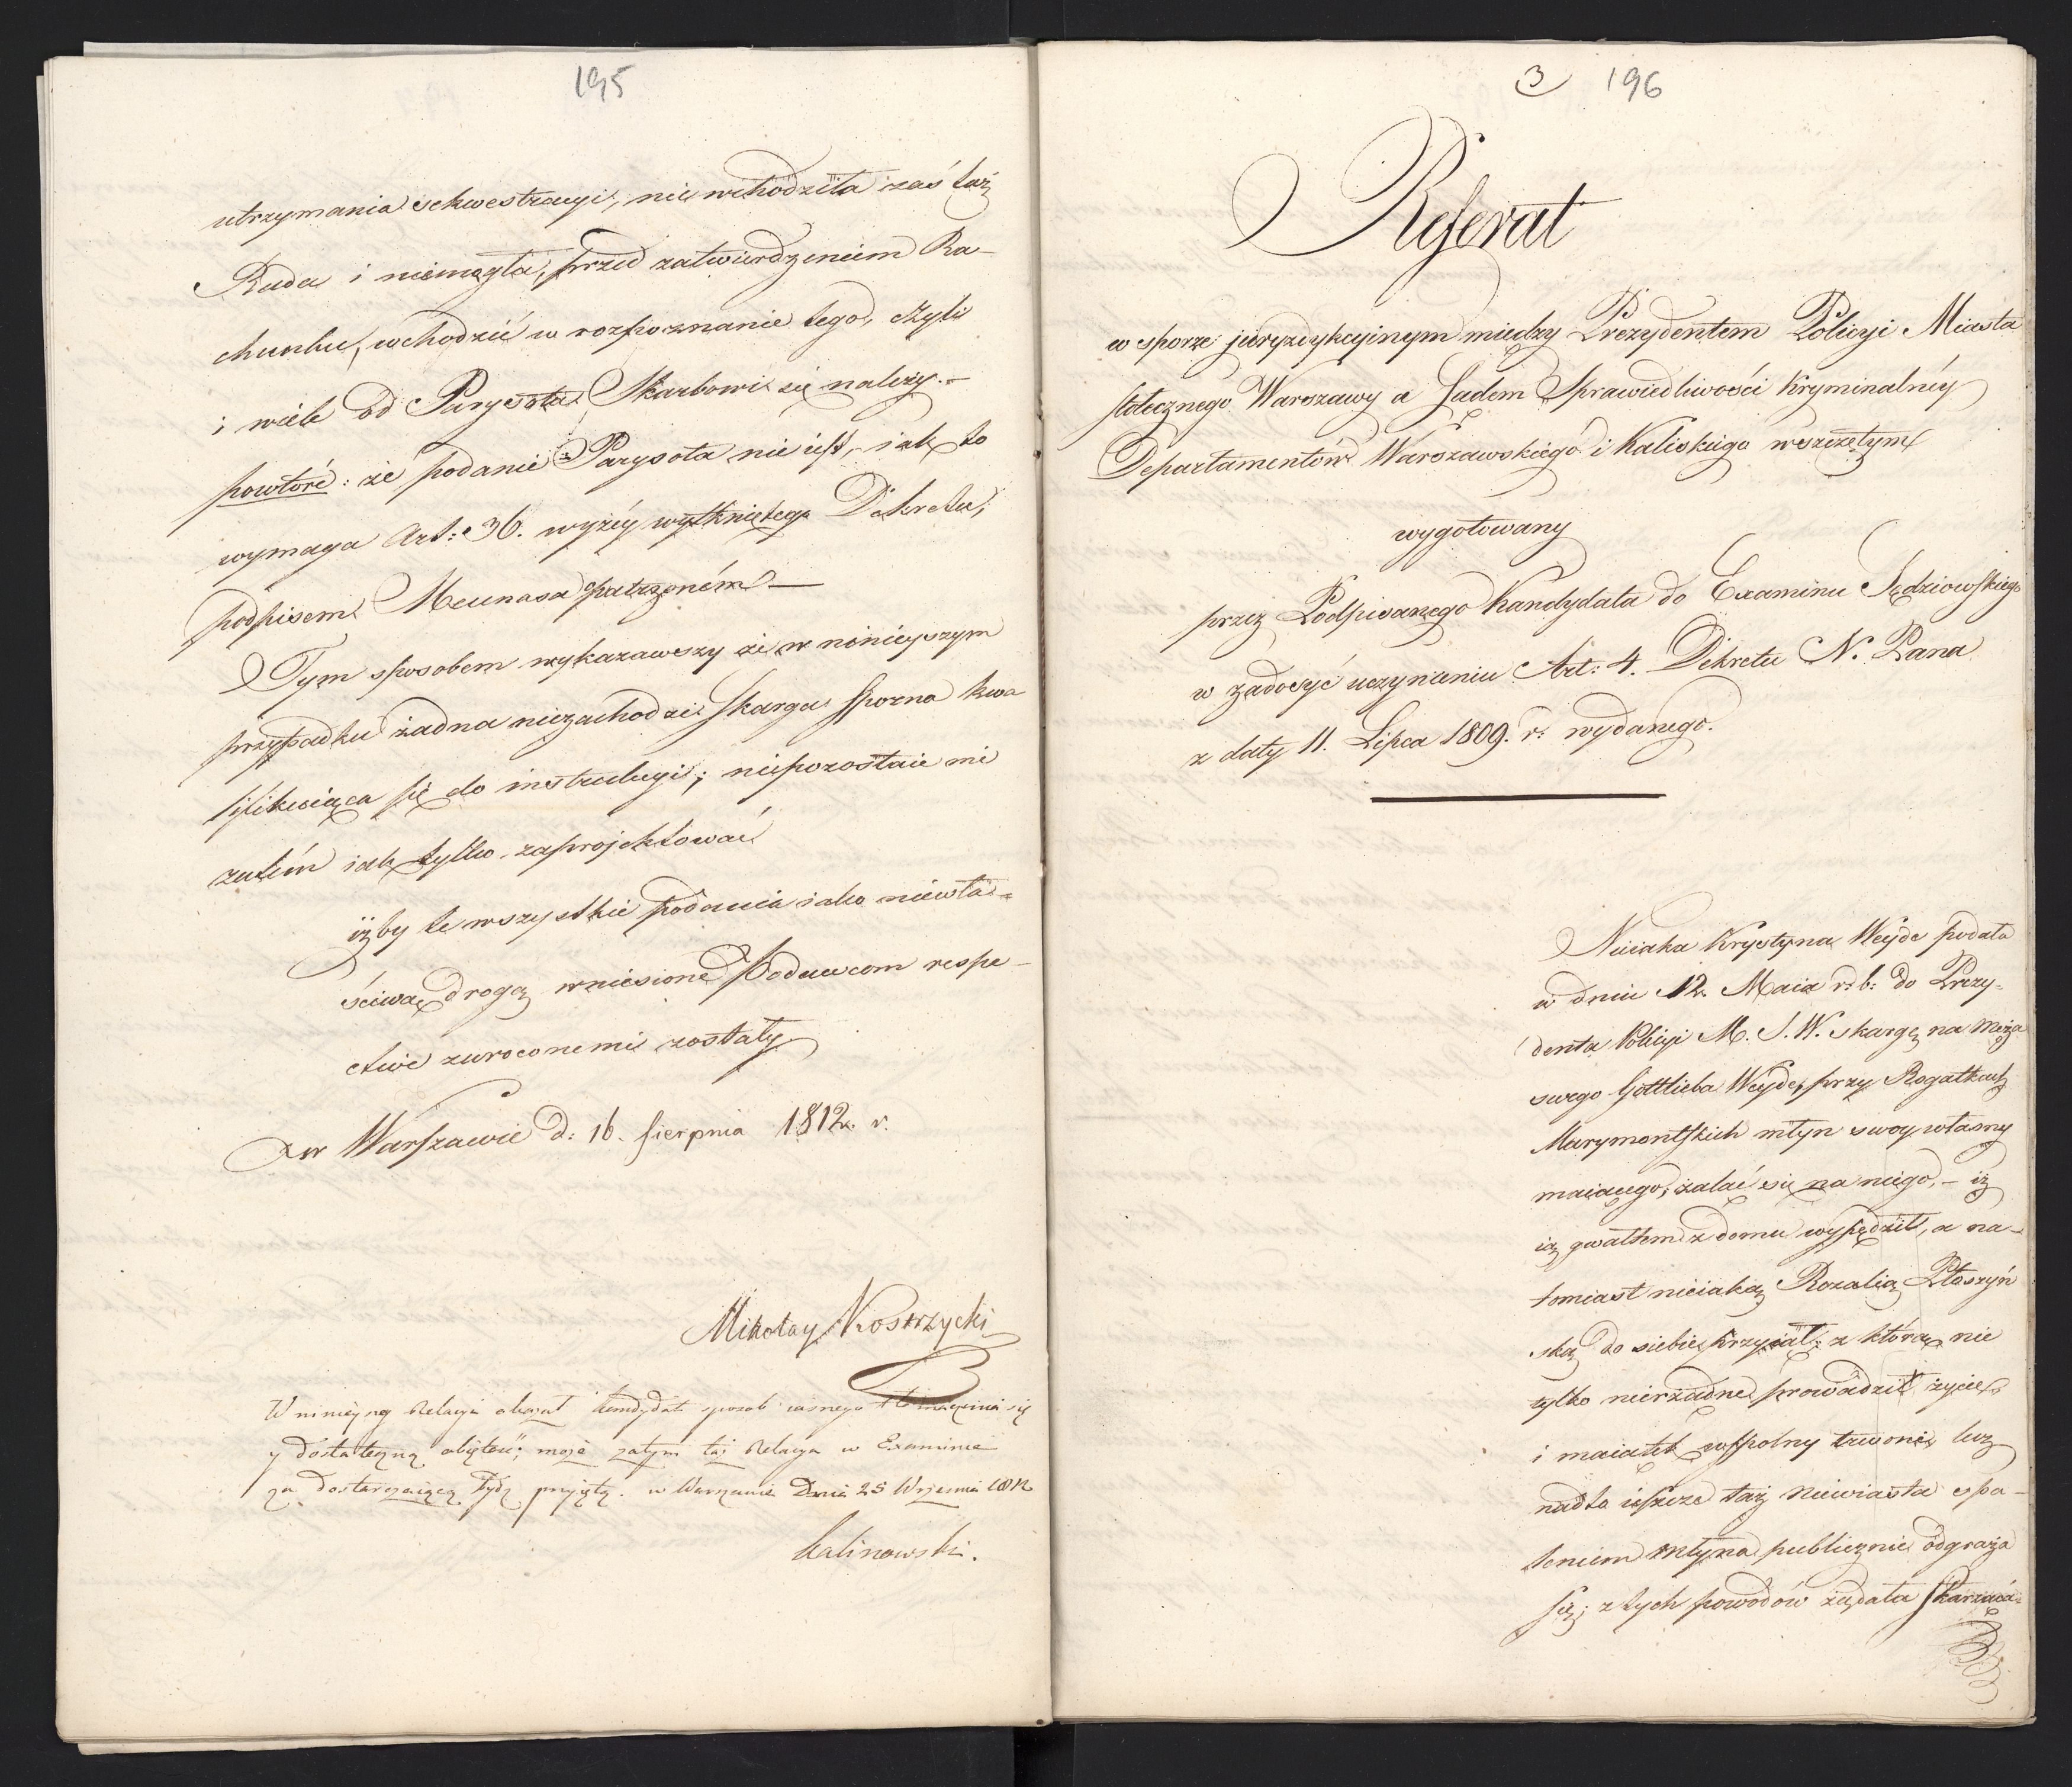 195
utrzymania sekwestracyi, nie wchodziła zaś taż
Rada i niemogła, przed zatwierdzeniem Ra-
chunku, wchodzić w rozpoznanie tego, czyli
i wiele od Parysota Skarbowi się należy.-
powtóré: że podanie Parysota nie iest, iak to
wymaga Art: 36. wyżéy wytkniętego Dekretu,
podpisem Mecenasa opatrzoném —
Tym sposobem wykazawszy że w ninieyszym
przypadku żadna niezachodzi skarga sporna kwa
lifikuiąca się do instrukcyi; niepozostaie mi
zatém iak tylko zaprojektować
iżby te wszystkie podania iako niewła-
ściwą drogą wniesione Podawcom respe-
ctive zwroconemi zostały
w Warszawie d: 16. sierpnia 1812. r.
Mikołay Kostrzycki
W ninieyszey Relacyi okazał kandydat sposób iasnego tłomaczenia się
y dostateczną obiętość; może zatym taż Relacya w Examinie
za dostarczaiącą bydź przyiętą. w Warszawie Dnia 25 Września 1812
Kalinowski.
3 196
Referat
w sporze juryzdykcyinym między Prezydentem Policyi Miasta
stołecznego Warszawy a Sądem Sprawiedliwości Kryminalnéy
Departamentów Warszawskiego i Kaliskiego wszczętym
wygotowany
przez Podpisanego Kandydata do Examinu Sędziowskiego
w zadosyć uczynieniu Art: 4. Dekretu N. Pana
z daty 11. Lipca 1809. r. wydanego.
Nieiaka Krystyna Weyde podała
w dniu 12. Maia r. b: do Prezy-
denta Policyi M. S. W. skargę na męża
swego Gottlieba Weyde, przy Rogatkach
Marymontskich młyn swoy własny
maiącego, żaląc się na niego, - iż
ią gwałtem z domu wypędził, a na-
tomiast nieiaką Rozalią Płoszyń
ską do siebie przyiął; z którą nie
tylko nierządne prowadził życie,
i maiątek wspolny trwoni, lecz
nadto ieszcze taż niewiasta spa-
leniem młyna publicznie odgraża
się; z tych powodów żądała skarżąca